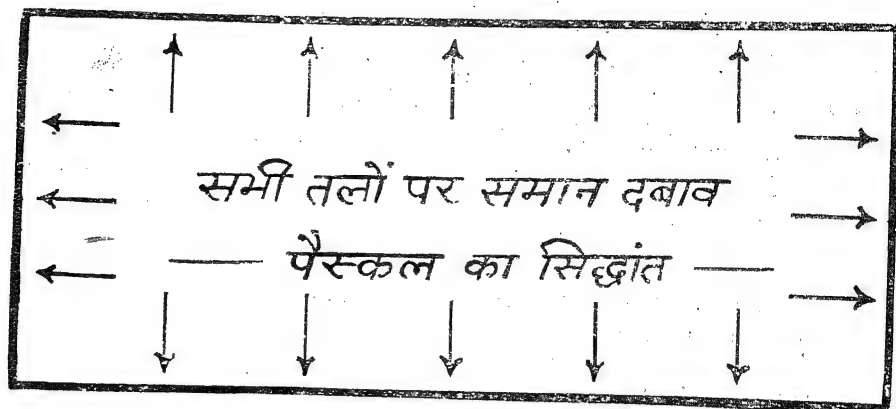 सभी तलों पर समान दबाव
— पैस्कल का सिद्धांत —